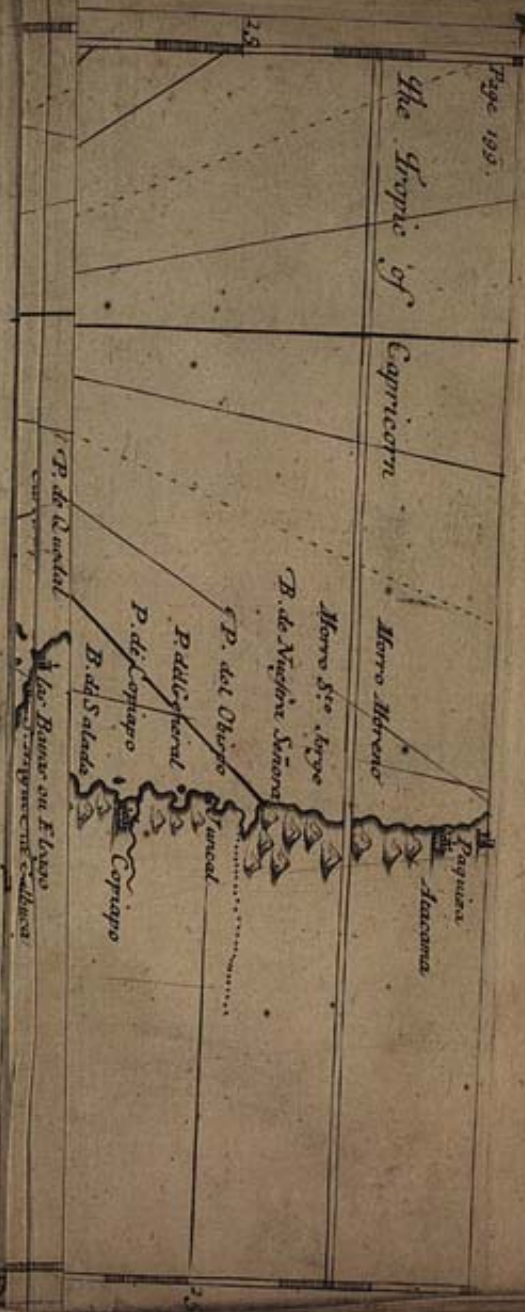 Page 199.
The Tropic of Capricorn
Paquiza
Atacama
Morro Moreno
Morro Sto Jorge
B. de Nuestra Señora
P. del Obispo
Juncal
P. del Cghoral
P. de Copiapo
Copiapo
B. da Salada
P. de Quedal
25
25